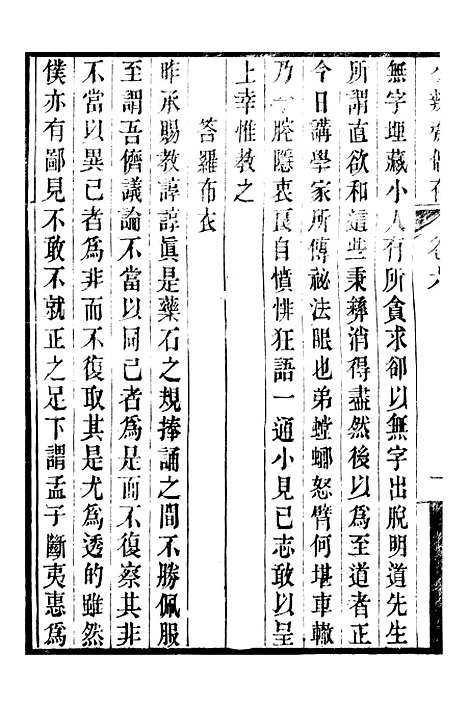 無字埋藏小人有所貪求卻以無字出脫明道先生
所謂直欲和這些秉彝消得盡然後以爲至道者正
今日講學家所傳祕法眼也弟螳螂怒臂何堪車轍
乃一腔隱衷良自憤悱狂語一通小見已志敢以呈
上幸惟教之
答羅布衣
昨承賜教諄諄眞是藥石之規捧誦之間不勝佩服
至謂吾儕議論不當以同已者爲是而不復察其非
不當以異已者爲非而不復取其是尤爲透的雖然
僕亦有鄙見不敢不就正之足下謂孟子斷夷惠爲